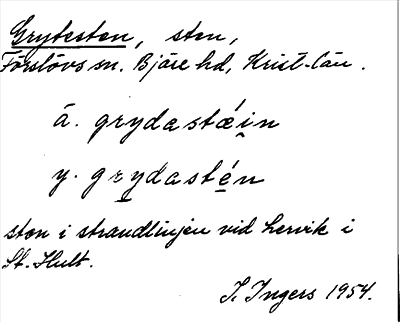 Grytesten, sten,
Förslövs sn. Bjäre hd, Krist. län.
ä. grydastǽi̯n
y. grydastén
sten i strandlinjen vid Lervik i
St. Hult.
I. Ingers 1954.